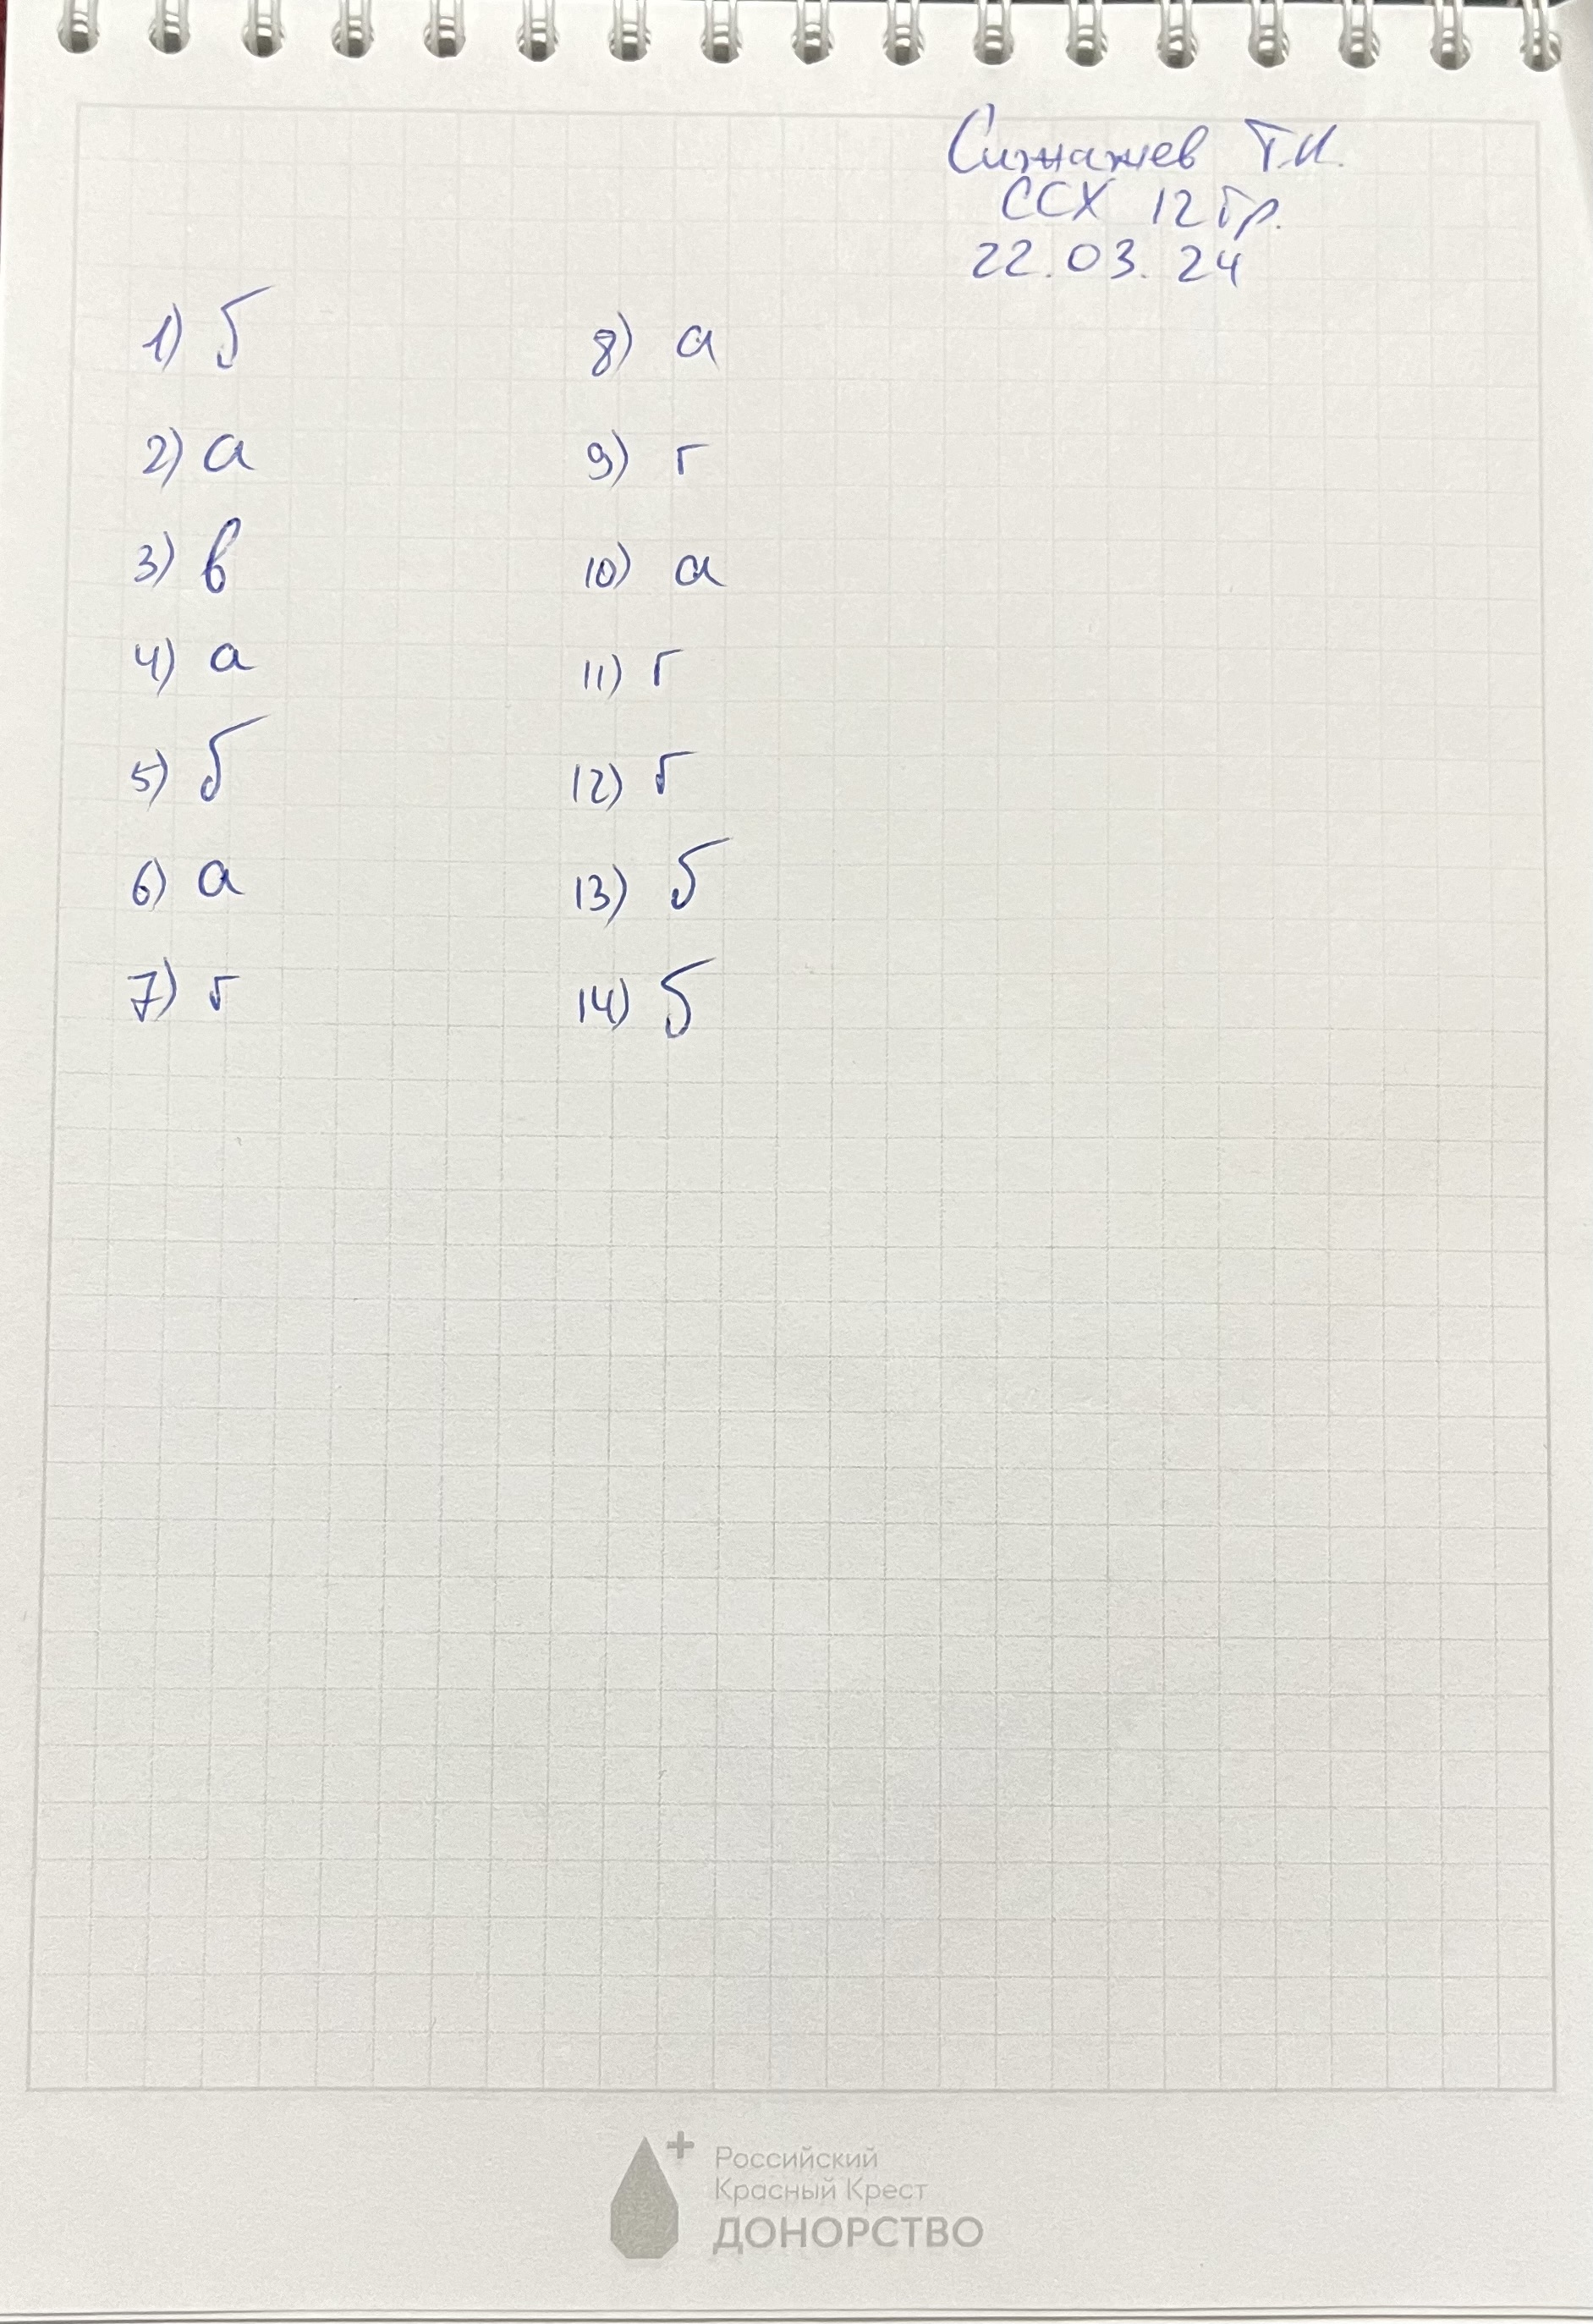 Сижажев Т.И.
ССХ 12 гр.
22.03.24
1) б
2) а
3) в
4) а
5) б
6) а
7) г
8) а
9) г
10) а
11) г
12) г
13) б
14) б
Российский
Красный Крест
ДОНОРСТВО